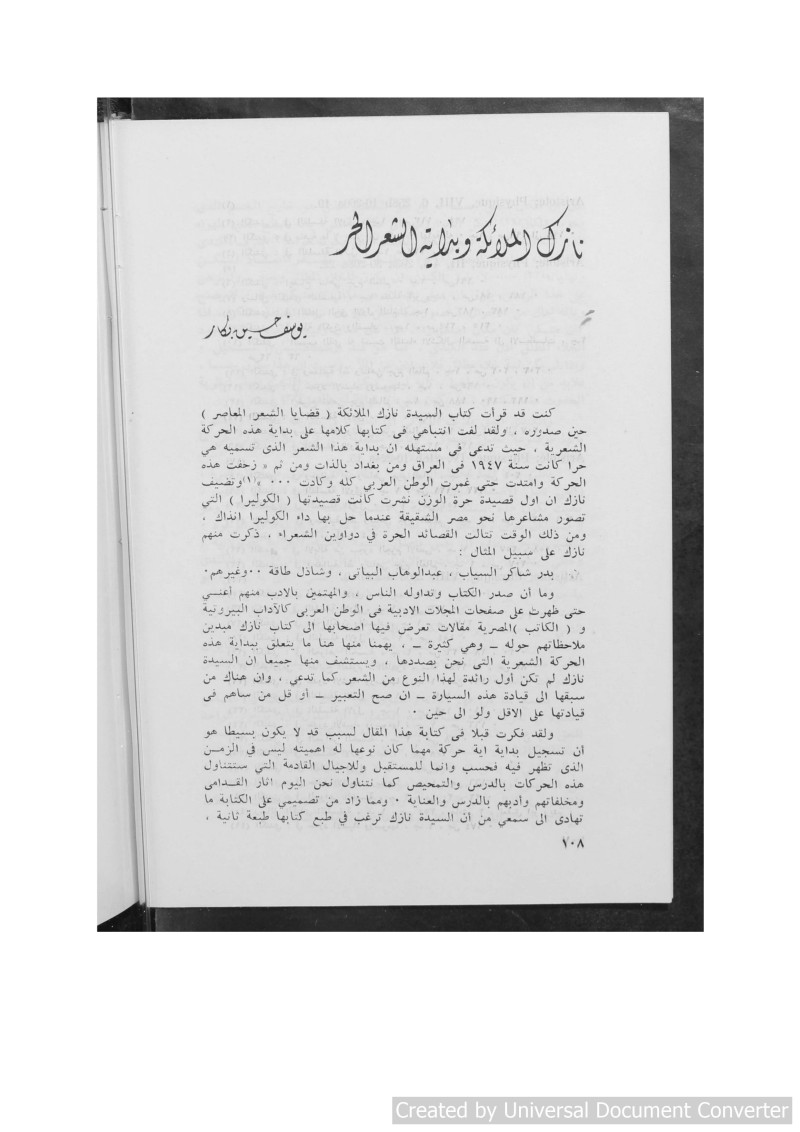 نازك الملائكة وبداية الشعر الحر
يوسف حسين بكار
كنت قد قرأت كتاب السيدة نازك الملائكة ( قضايا الشعر المعاصر )
حين صدوره ، ولقد لفت انتباهي فى كتابها كلامها على بداية هذه الحركة
الشعرية ، حيث تدعى فى مستهله ان بداية هذا الشعر الذى تسميه هي
حرا كانت سنة ١٩٤٧ فى العراق ومن بغداد بالذات ومن ثم « زحفت هذه
الحركة وامتدت حتى غمرت الوطن العربي كله وكادت ٠٠٠ »(١) وتضيف
نازك ان اول قصيدة حرة الوزن نشرت كانت قصيدتها ( الكوليرا ) التي
تصور مشاعرها نحو مصر الشقيقة عندما حل بها داء الكوليرا آنذاك ،
ومن ذلك الوقت تتالت القصائد الحرة في دواوين الشعراء ، ذكرت منهم
نازك على سبيل المثال :
بدر شاكر السياب ، عبدالوهاب البياتى ، وشاذل طاقة ٠٠وغيرهم٠
وما أن صدر الكتاب وتداوله الناس ، والمهتمين بالادب منهم أعنـي
حتى ظهرت على صفحات المجلات الادبية فى الوطن العربى كالآداب البيروتية
و ( الكاتب )المصرية مقالات تعرض فيها اصحابها الى كتاب نازك مبدين
ملاحظاتهم حوله ــ وهي كثيرة ــ ، يهمنا منها هنا ما يتعلق ببداية هذه
الحركة الشعرية التى نحن بصددها ، ويستشف منها جميعا ان السيدة
نازك لم تكن أول رائدة لهذا النوع من الشعر كما تدعي ، وان هناك من
سبقها الى قيادة هذه السيارة ــ ان صح التعبير ــ أو قل من ساهم فى
قيادتها على الاقل ولو الى حين ٠
ولقد فكرت قبلا فى كتابة هذا المقال لسبب قد لا يكون بسيطا هو
أن تسجيل بداية اية حركة مهما كان نوعها له اهميته ليس في الزمـن
الذى تظهر فيه فحسب وانما للمستقبل وللاجيال القادمة التي ستتناول
هذه الحركات بالدرس والتمحيص كما نتناول نحن اليوم آثار القـدامى
ومخلفاتهم وأدبهم بالدرس والعناية ٠ ومما زاد من تصميمي على الكتابة ما
تهادى الى سمعي من أن السيدة نازك ترغب في طبع كتابها طبعة ثانية ،
١٠٨
Created by Universal Document Converter